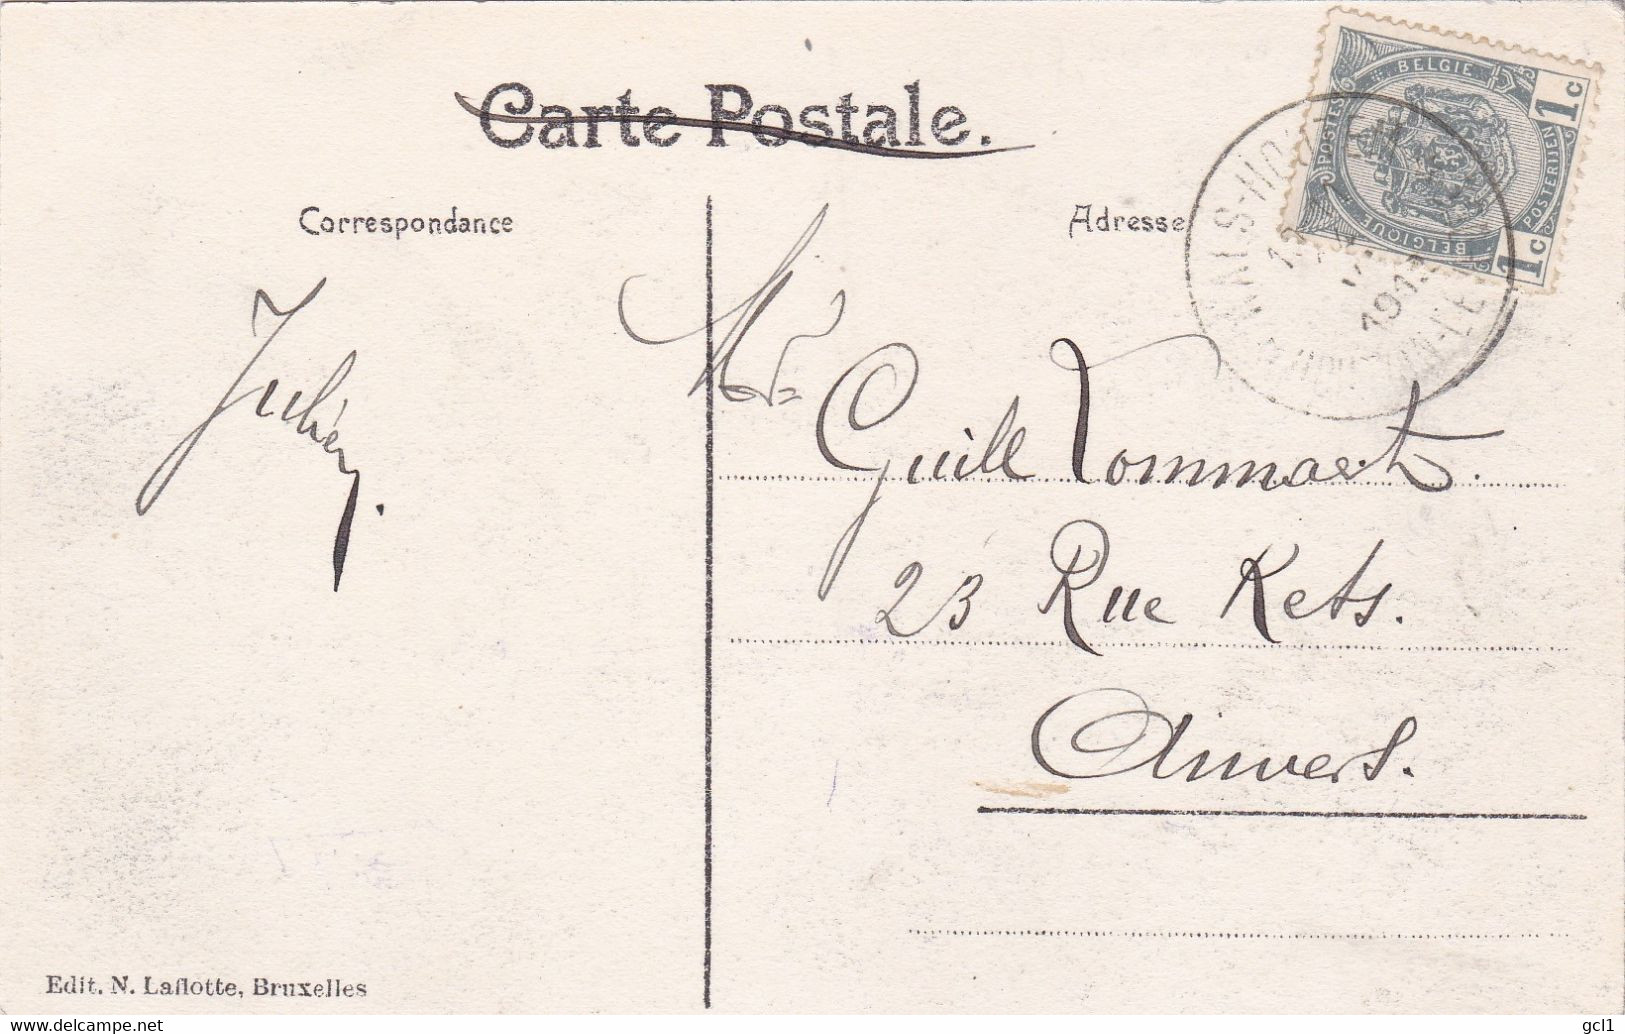 Carte Postale.
Correspondance
Adresse
BELGIE
POSTES
POSTERIJEN
BELGIQUE
1c
1c
1913
Julien.
Mr
Guill Tommaert.
23 Rue Kets.
Anvers.
Edit. N. Laflotte, Bruxelles
www.delcampe.net
gcl1